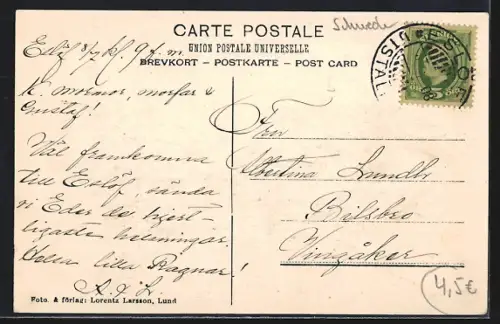 CARTE POSTALE
UNION POSTALE UNIVERSELLE
BREVKORT – POSTKARTE – POST CARD
Schwede
Eslöf 8/7 kl. 9 f.m.
K. mormor, morfar &
Gustaf!
Väl framkomna
till Eslöf, sända
vi Eder de hjert-
ligaste helsningar.
lilla Ragnar!
A. & L.
Fru
Albertina Lundh
Bilsbro
Vingåker
ESLÖF
Foto. & förlag: Lorentz Larsson, Lund
4,5€